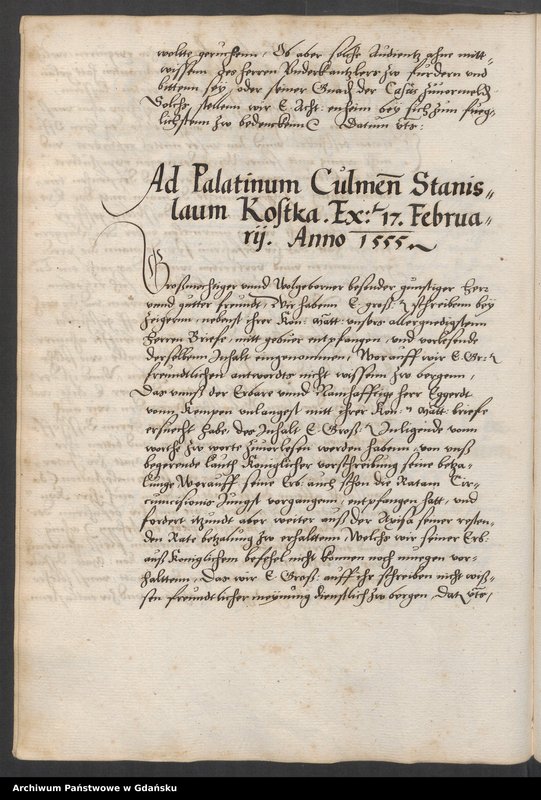 wollte geruckenn, Ob aber solche Audientz ahne mitt-
wissenn Jro Herren Underkantzlers zw fürdern und
bittenn sey, oder seiner Gnad: der Casus zuvermeld:
Solchs stellenn wir E. Acht: enheim bey sich zum fueg-
lichstenn zw bedenckenn Datum uts:
Ad Palatinum Culmen̄ Stanis-
laum Kostka. Ex: 17. Februa-
rij. Anno 1555.
Großmechtiger unnd Wolgeborner besonder günstiger Herr
unnd gutter freundt, Wir habenn E. groß: schreibenn bey
zeigernn, nebenst ihrer Kön: Matt: unsers allergnedigstenn
Herren Briefe, mitt gebüer entpfangen, und vorlesende
derselbenn Inhalt eingenommen, Worauff wir E. Gr:
freundtlichen antwordts nicht wissenn zw bergenn,
Das unnß der Erbare unnd Namhafftige Herr Eggerdt
vonn Kempen unlangest mitt ihrer Kön: Matt: briefe
ersucht habe, des Inhalt E. Groß: Inligende vonn
wortt zw worte zuvorlesen werden habenn, von unß
begerende lauth Königlicher vorschreibung seine beza-
lunge Worauff seine Erb: auch schon die Ratam Cir-
cumcisionis Jungst vorgangenn, entpfangen hatt, und
fordert itzundt aber weiter auß der Ayssa seiner resten-
den Rate bezalung zw erhalttenn, Welchs wir seiner Erb:
auß Königlichem befehel nicht können noch muegen vor-
halttenn, Das wir E. Groß: auff ihr schreiben nicht wiß-
sen freundtlicher meynung dienstlich zw bergen, Dat uts,
Archiwum Państwowe w Gdańsku